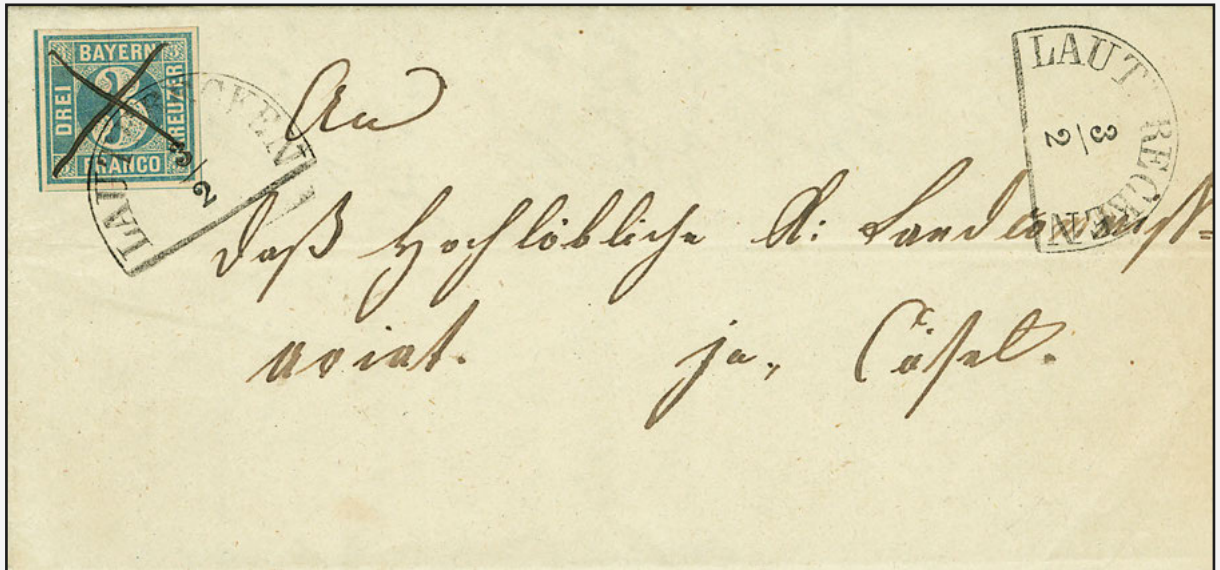 BAYERN
DREI
KREUZER
FRANCO
3
LAUTERECKEN
3/2
LAUTERECKEN
3/2
An
Daß Hochlöbliche K: Landcommiss=
ariat. zu, Cusel.